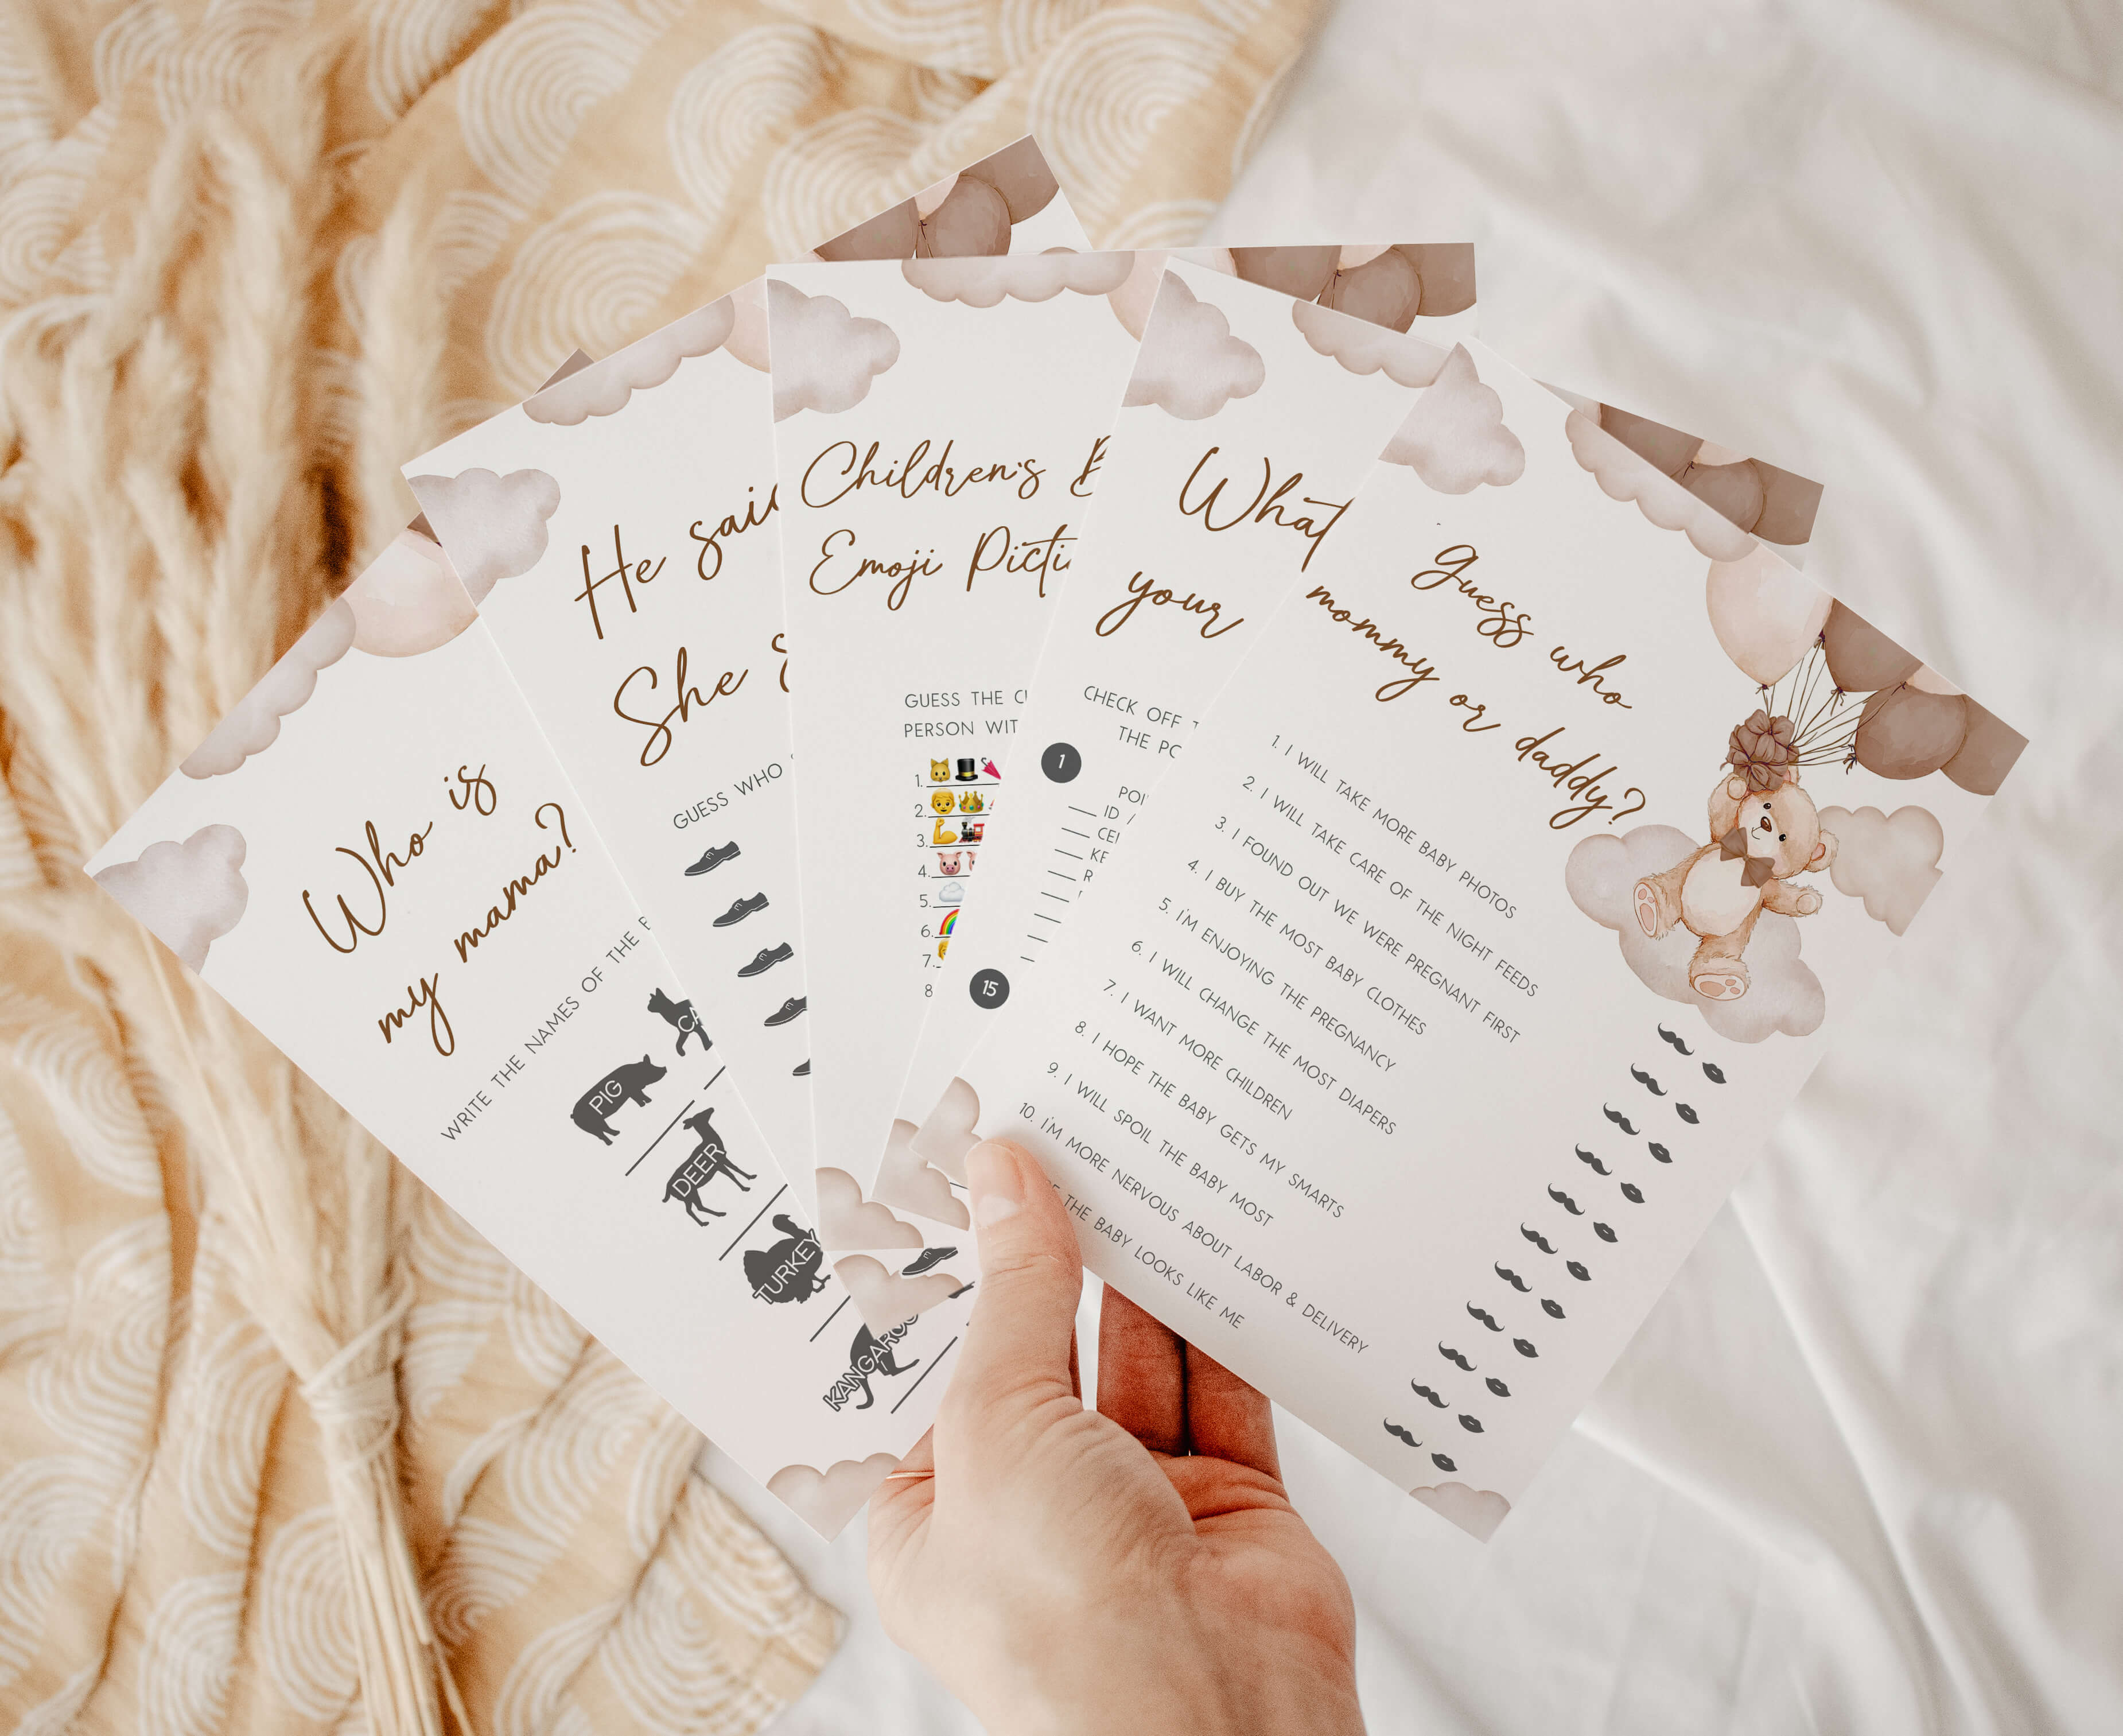 Who is
my mama?
WRITE THE NAMES OF THE
PIG
DEER
TURKEY
KANGAROO
He said
She
GUESS WHO
Children's
Emoji
GUESS THE
PERSON
1.
2.
3.
4.
5.
6.
7.
8
What
your
CHECK OFF
THE
1
ID /
15
Guess who
mommy or daddy?
1. I WILL TAKE MORE BABY PHOTOS
2. I WILL TAKE CARE OF THE NIGHT FEEDS
3. I FOUND OUT WE WERE PREGNANT FIRST
4. I BUY THE MOST BABY CLOTHES
5. I'M ENJOYING THE PREGNANCY
6. I WILL CHANGE THE MOST DIAPERS
7. I WANT MORE CHILDREN
8. I HOPE THE BABY GETS MY SMARTS
9. I WILL SPOIL THE BABY MOST
10. I'M MORE NERVOUS ABOUT LABOR & DELIVERY
THE BABY LOOKS LIKE ME